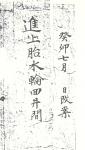 癸卯七月 日改案
進上胎本輪田井間